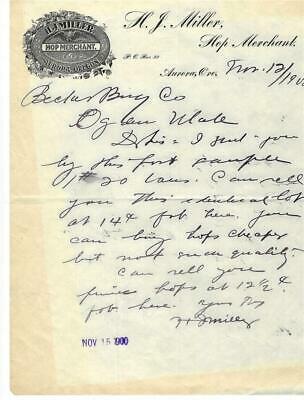 H. J. MILLER
HOP MERCHANT.
AURORA, OREGON.
H. J. Miller,
Hop Merchant.
P. O. Box 33
Aurora, Ore. Nov. 12/1900
Becker Brg Co
Ogden Utah
Drs = I send you
by this post sample
#20 Can sell
you this identical lot
at 14¢ fob here. You
can buy hops cheaper
but not such quality.
Can sell you
prime hops at 12 1/2 ¢
fob here. Yours Try
H J Miller
NOV 15 1900